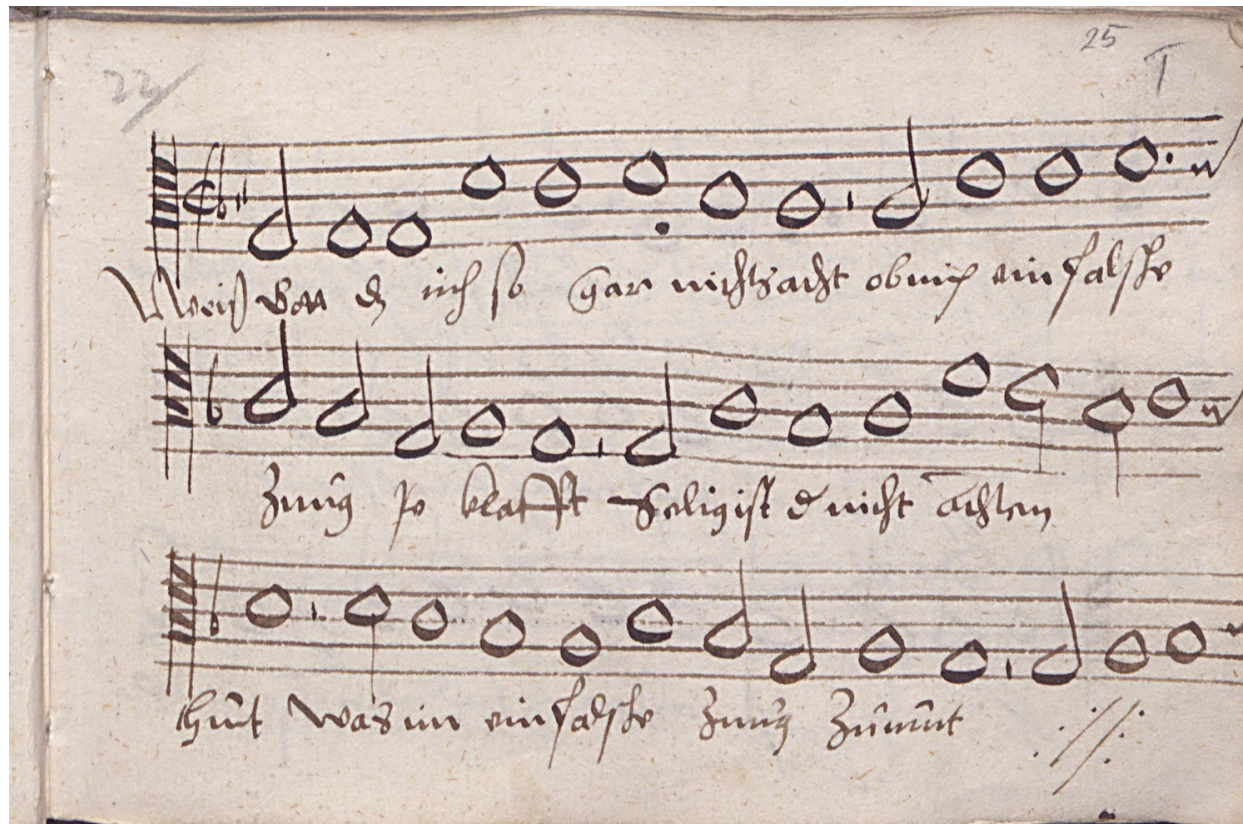 25
T
22
Weiß gott dz ich so gar nichts acht ob mich ein falsche
Zung je klafft Selig ist d nicht achten
thut was im ein falsche Zung